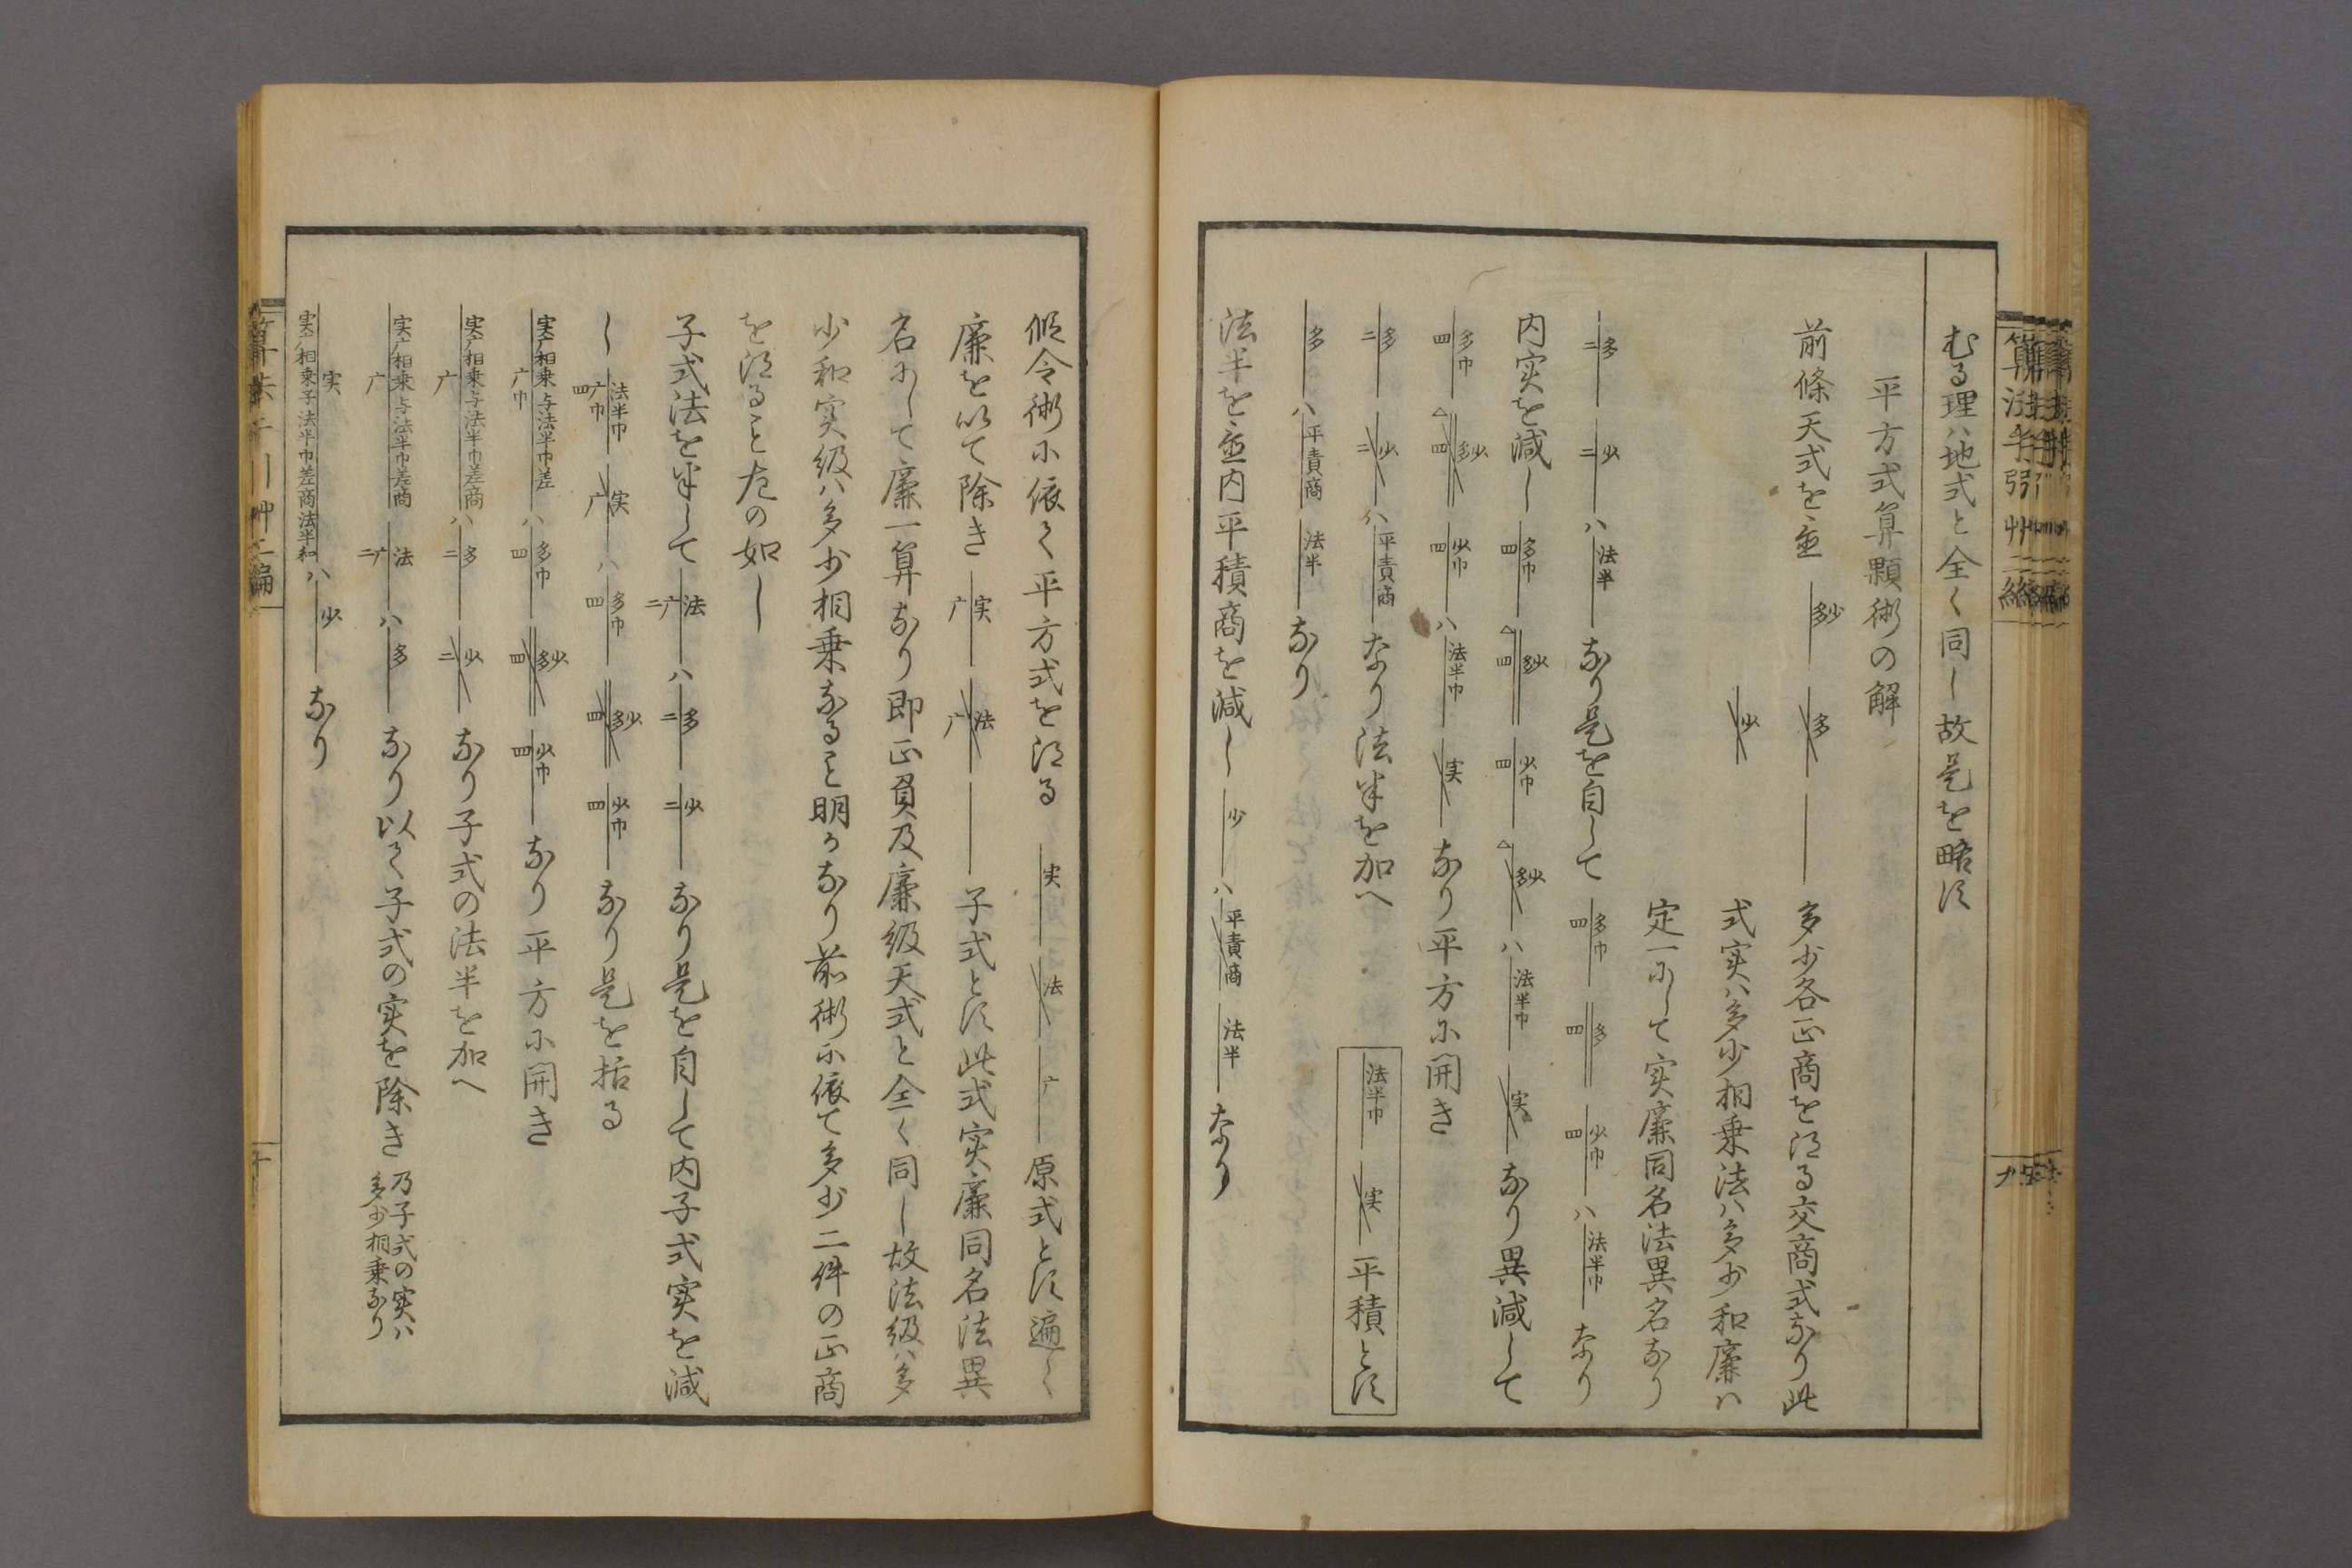 むる理ハ地式と全く同し故是を略す
平方式算顆術の解
前條天式を並 多少 多 多少各正商を得る交商式なり此
少 式実ハ多少相乗法ハ多少和廉ハ
定一にして実廉同名法異名なり
二多 二少 ハ 法半 なり是を自して 四多巾 四多 四少巾 ハ 法半巾 なり
内実を減し 四多巾 四多少 四少巾 多少 ハ 法半巾 実 なり異減して
四多巾 四多少 四少巾 ハ 法半巾 実 なり平方に開き
二多 二少 ハ 平責商 なり法半を加へ 法半巾 実 平積とす
多 ハ 平責商 法半 なり
法半を並内平積商を減し 少 ハ 平責商 法半 なり
假令術に依て平方式を得る 実 法 广 原式とす遍く
廉を以て除き 广実 广法 子式とす此式実廉同名法異
名にして廉一算なり即正負及廉級天式と全く同し故法級ハ多
少和実級ハ多少相乗なること明かなり前術に依て多少二件の正商
を得ること左の如し
子式法を半して 二广法 ハ 二多 二少 なり是を自して内子式実を減
し 四广巾法半巾 广実 ハ 四多巾 四多少 四少巾 なり是を括る
广巾 実广相乗与法半巾差 ハ 四多巾 四多少 四少巾 なり平方に開き
广 実广相乗与法半巾差商 ハ 二多 二少 なり子式の法半を加へ
广 実广相乗与法半巾差商 二广法 ハ 多 なり以て子式の実を除き 乃子式の実ハ
多少相乗なり
実广相乗子法半巾差商法半和 実 ハ 少 なり